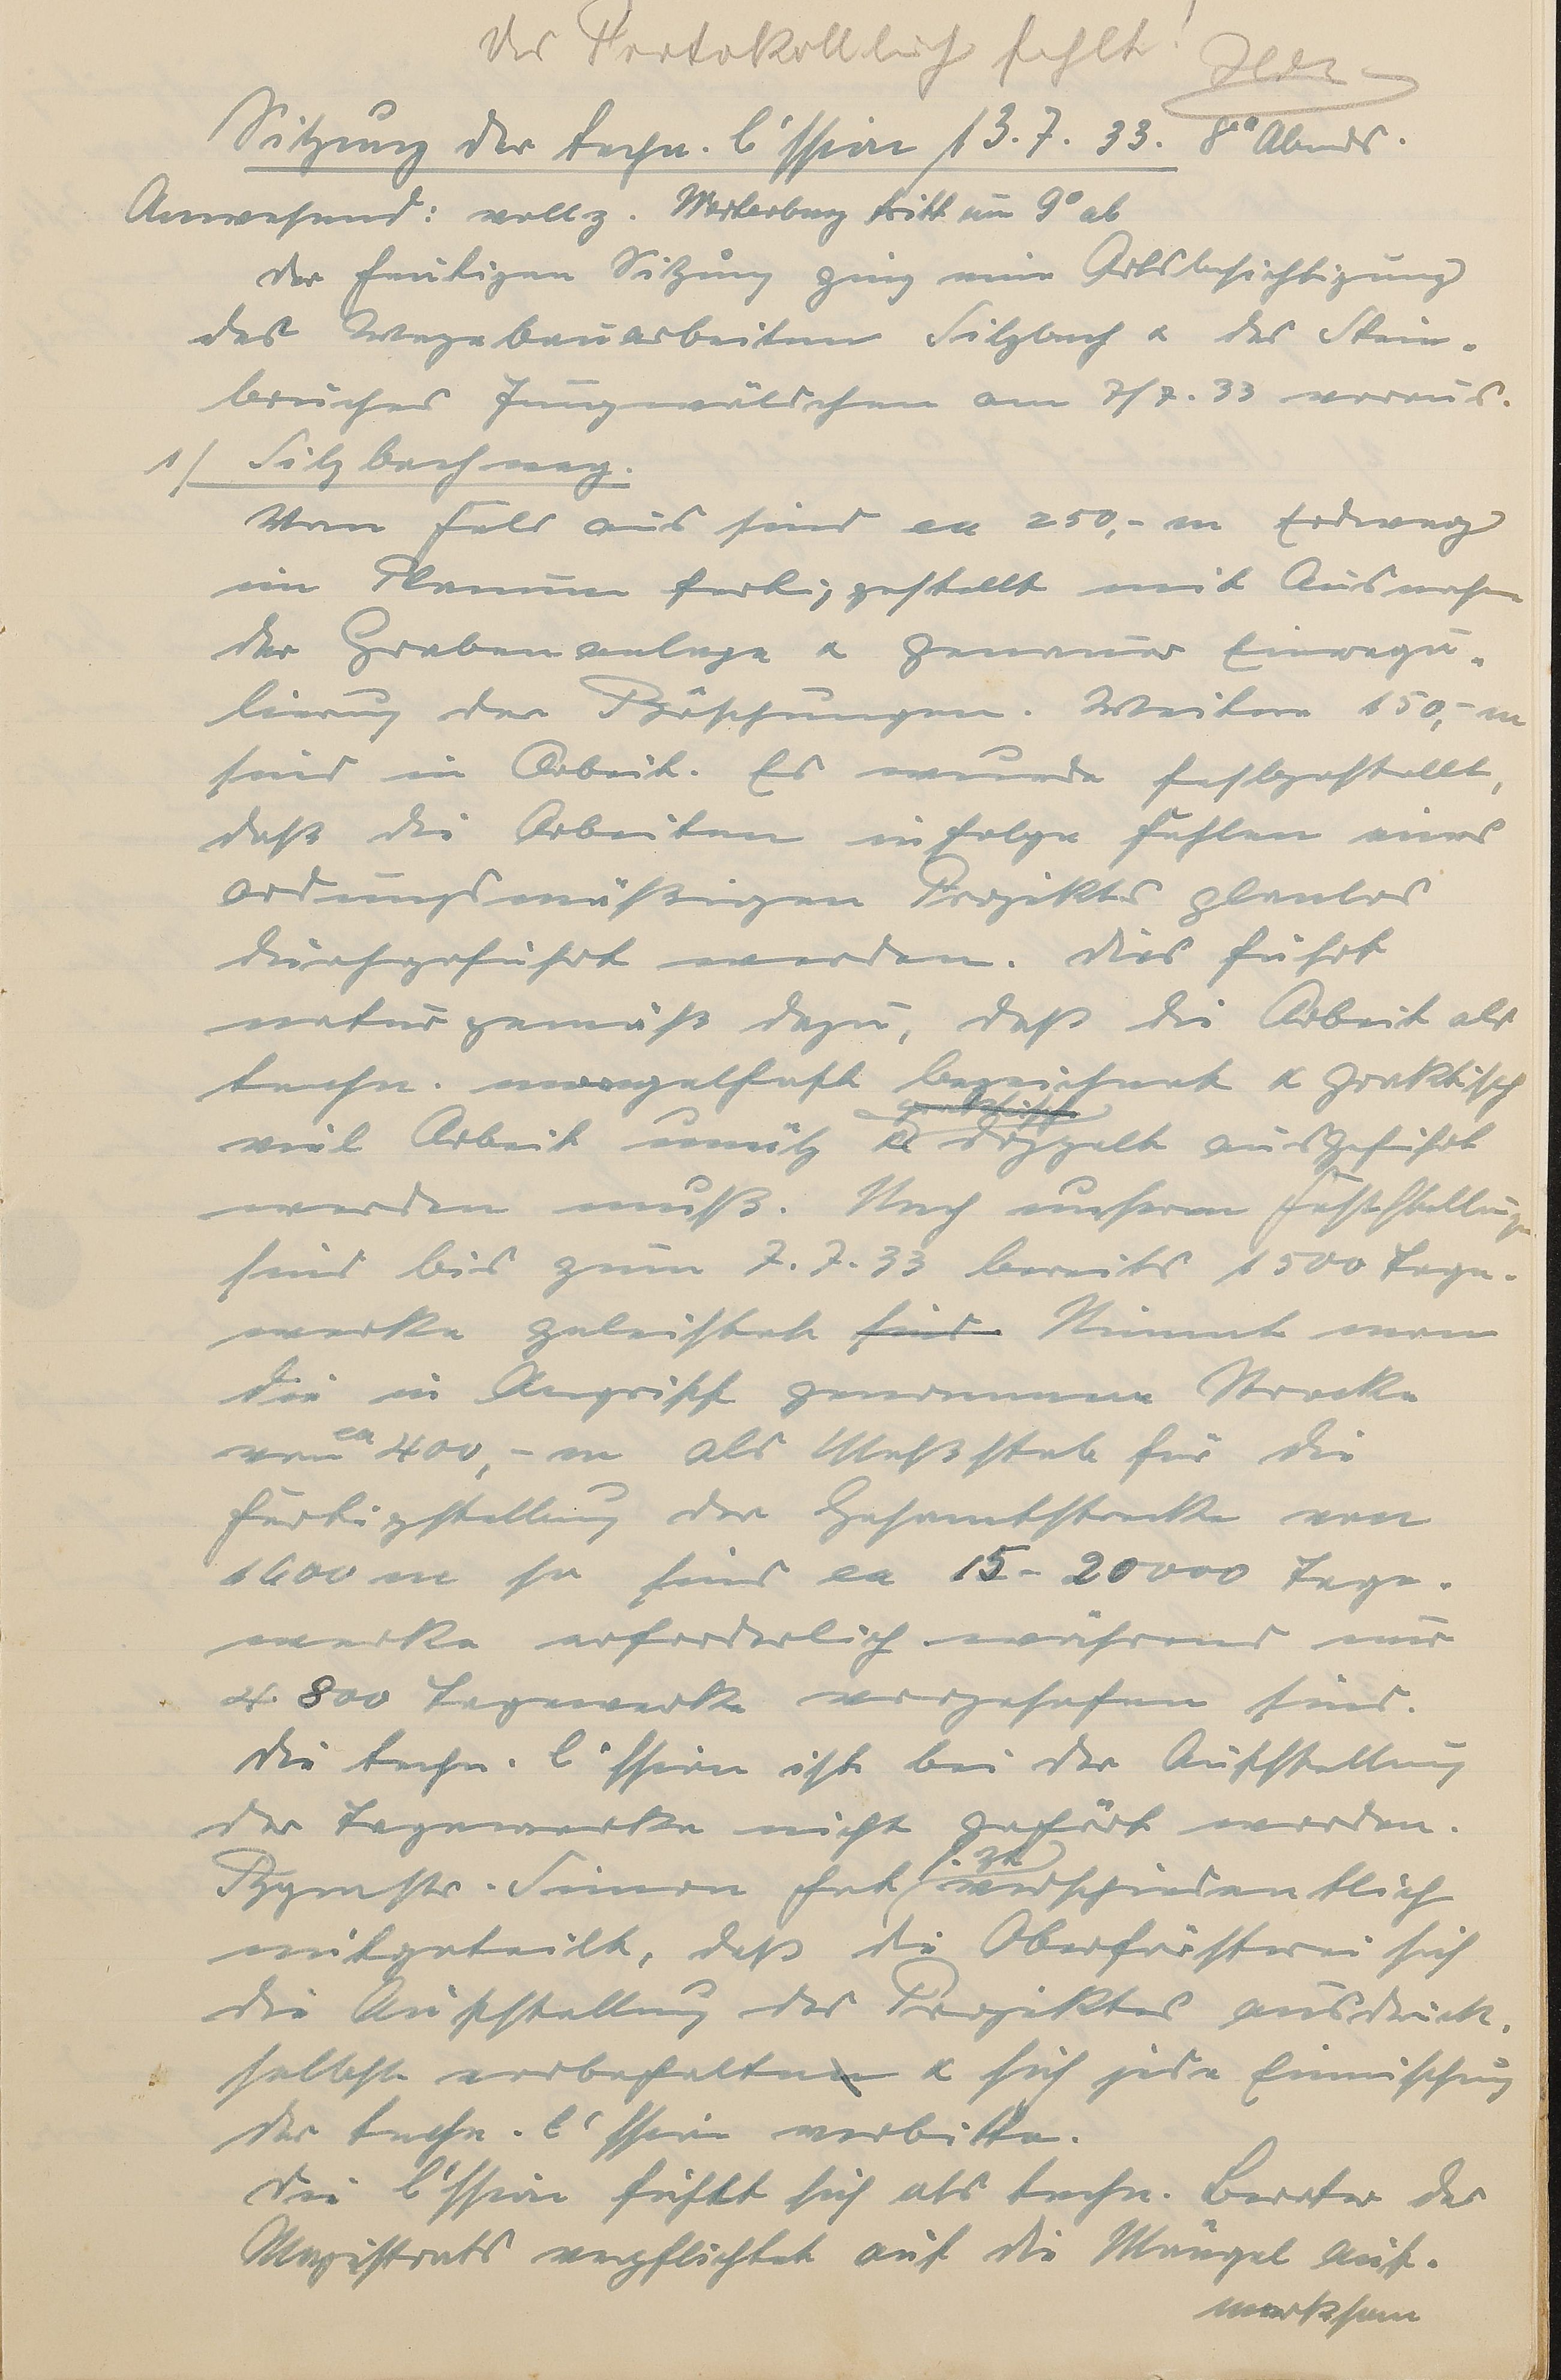 Das Protokollbuch fehlt!
Sitzung der techn. C'ssion 13.7.33. 8°° Abends.
Anwesend: vollz. Westerburg tritt um 9° ab
Der heutigen Sitzung ging eine Ortsbesichtigung
des Wegebauarbeiten Silzbach & des Stein-
bruches Jungwäldchen am 7/7.33 voraus.
1/ Silzbachweg.
Vom Feld aus sind ca 250,- m Erdweg
im Planum fertiggestellt mit Ausnahme
der Grabenanlage & genauer Einregu-
lierung der Böschungen. Weitere 150,- m
sind in Arbeit. Es wurde festgestellt,
daß die Arbeiten infolge Fehlen eines
ordnungsmäßigen Projektes planlos
durchgeführt werden. Dies führt
naturgemäß dazu, daß die Arbeit als
techn. mangelhaft bezeichnet & praktisch
viel Arbeit unnütz & praktisch doppelt ausgeführt
werden muß. Nach unseren Feststellungen
sind bis zum 7.7.33 bereits 1500 Tage-
werke geleistet sind Nimmt man
die in Angriff genommene Strecke
von ca 400,- m als Maßstab für die
Fertigstellung der Gesamtstrecke von
1600 m so sind ca 15-20000 Tage-
werke erforderlich während nur
4.800 Tagewerke vorgesehen sind.
Die techn. C'ssion ist bei der Aufstellung
der Tagewerke nicht gehört worden.
Bgmstr. Simon hat s. Zt. verschiedentlich
mitgeteilt, daß die Oberförsterei sich
die Aufstellung des Projektes ausdrück.
selbst vorbehalten & sich jede Einmischung
der techn. C'ssion verbitte.
Die C'ssion fühlt sich als techn. Berater des
Magistrats verpflichtet auf die Mängel auf-
merksam